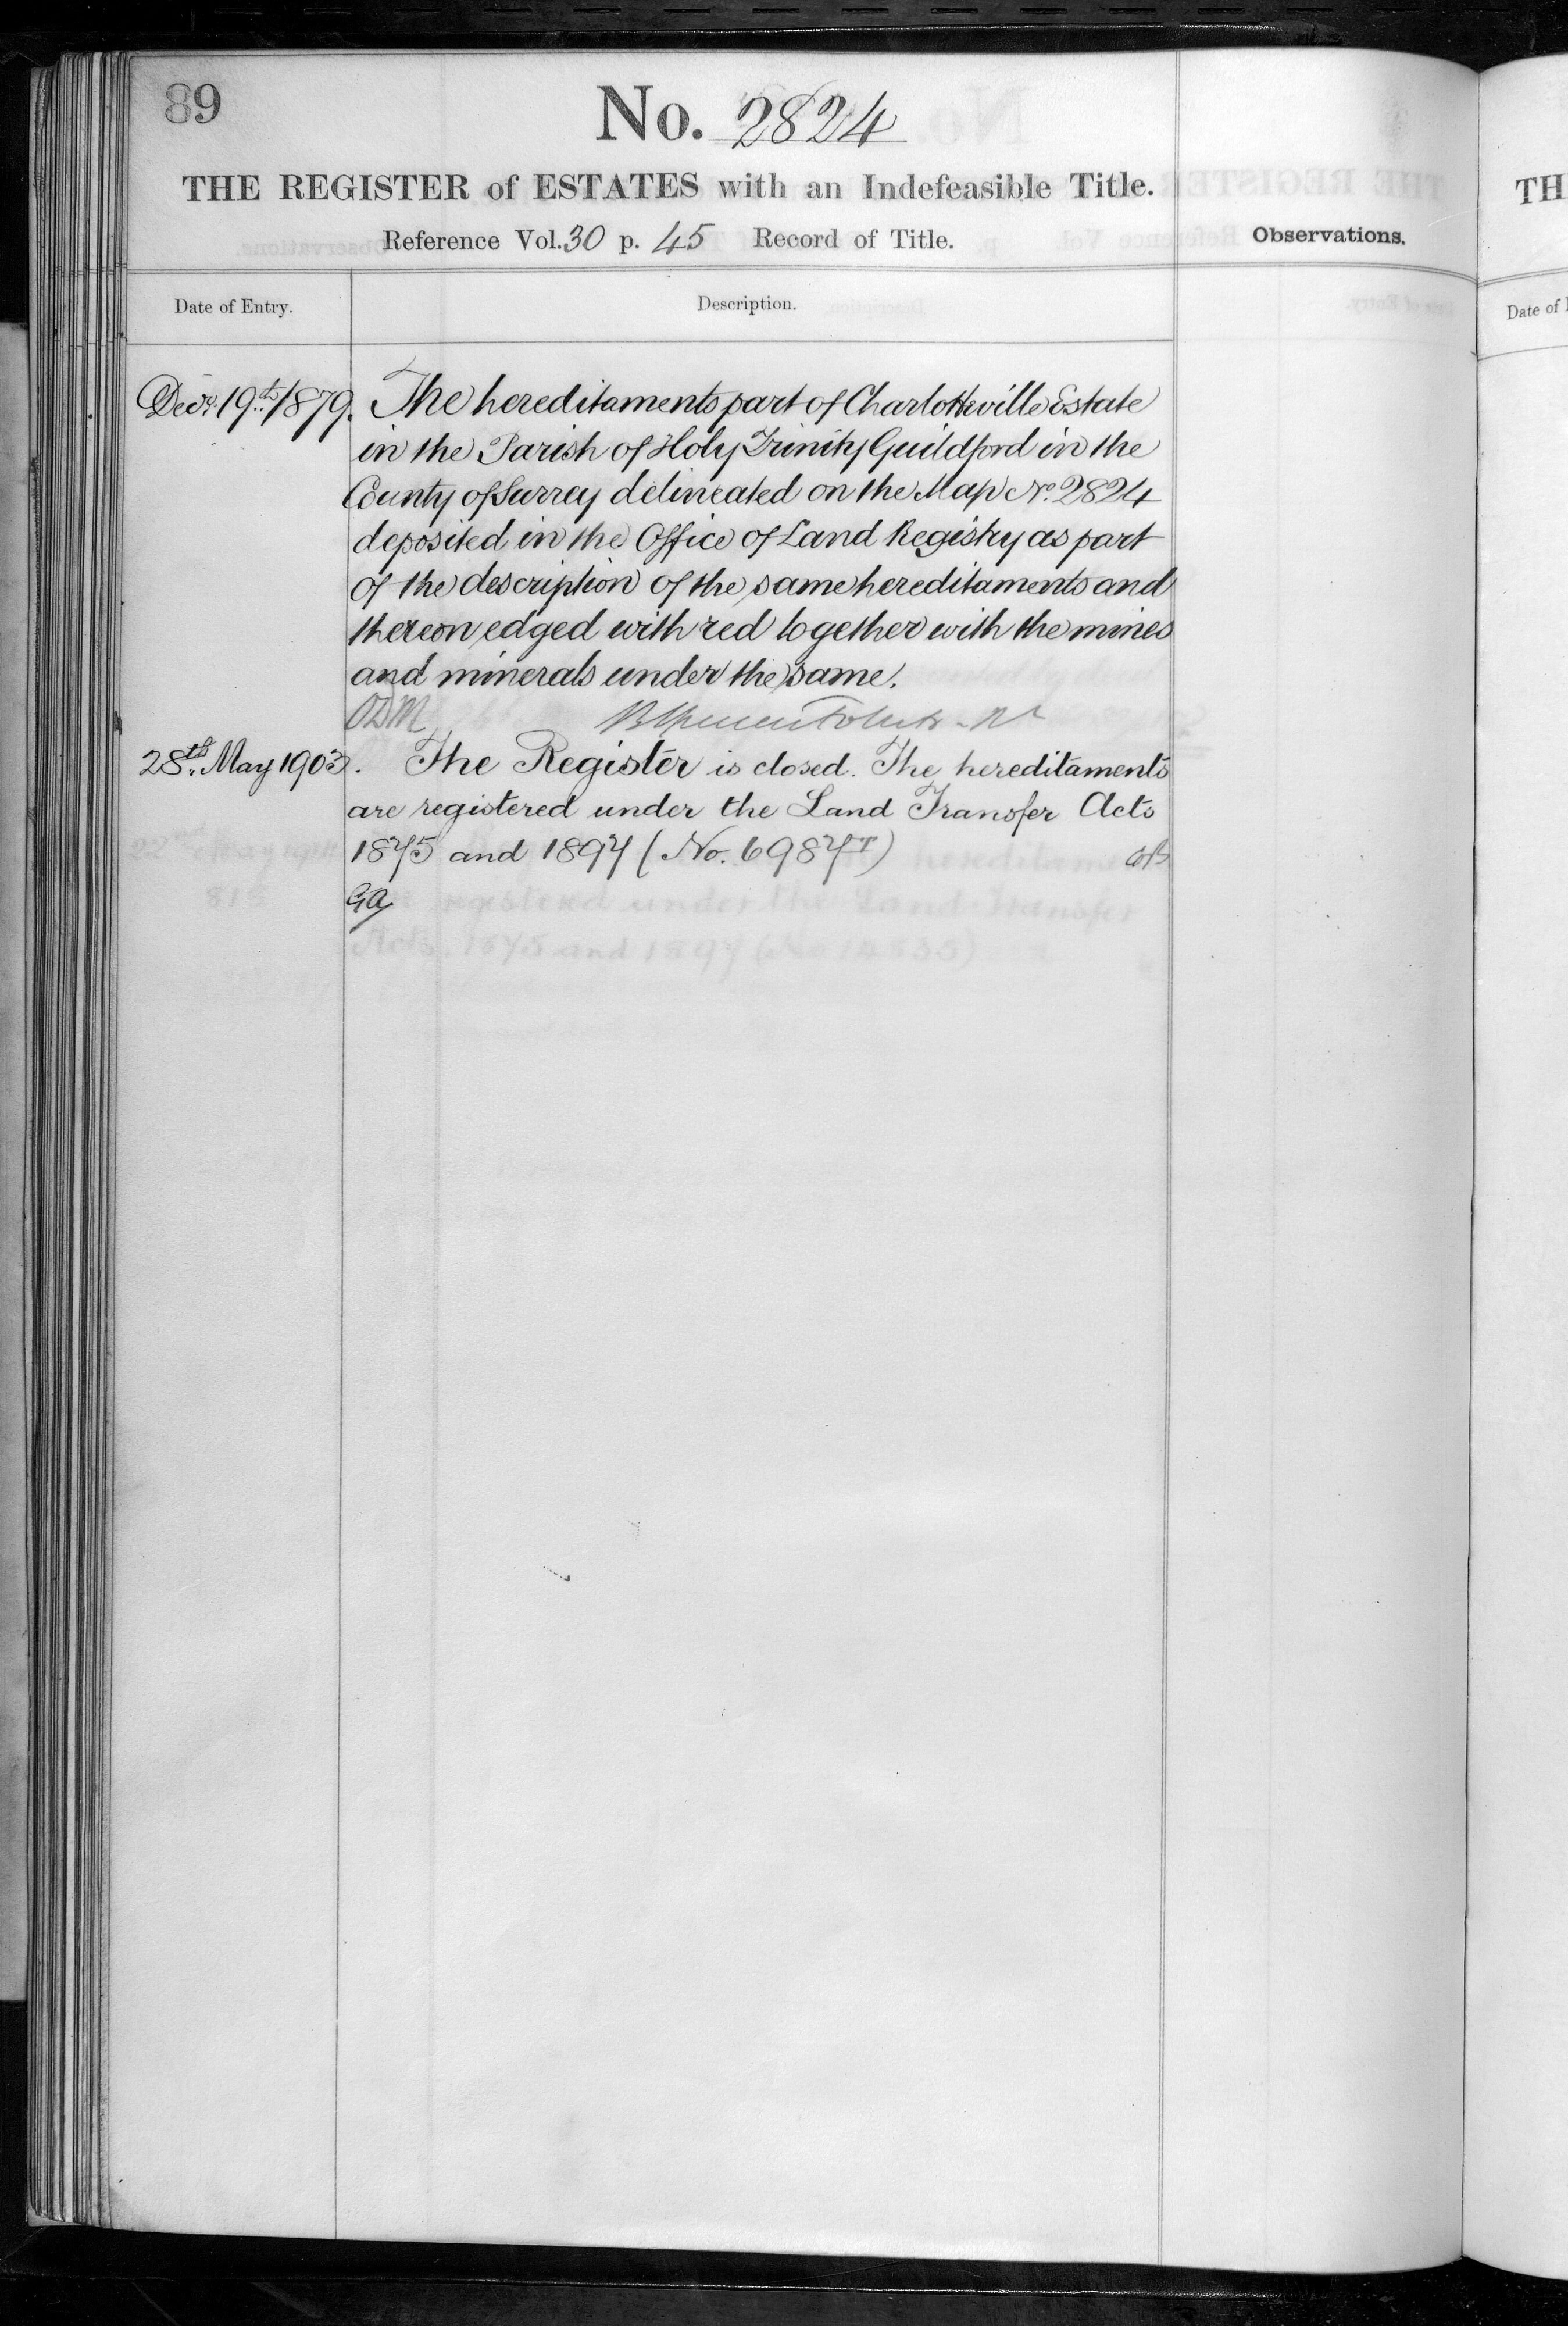 89
No. 2824
THE REGISTER of ESTATES with an Indefeasible Title.
Reference Vol. 30 p. 45 Record of Title.
Observations.
Date of Entry.
Description.
Decr. 19th 1879. The hereditaments part of Charlotteville Estate
in the Parish of Holy Trinity Guildford in the
County of Surrey delineated on the Map No. 2824
deposited in the Office of Land Registry as part
of the description of the same hereditaments and
thereon edged with red together with the mines
and minerals under the same.
ODM
28th May 1903. The Register is closed. The hereditaments
are registered under the Land Transfer Acts
1875 and 1897 (No. 6987T)
GA
TH
Date of